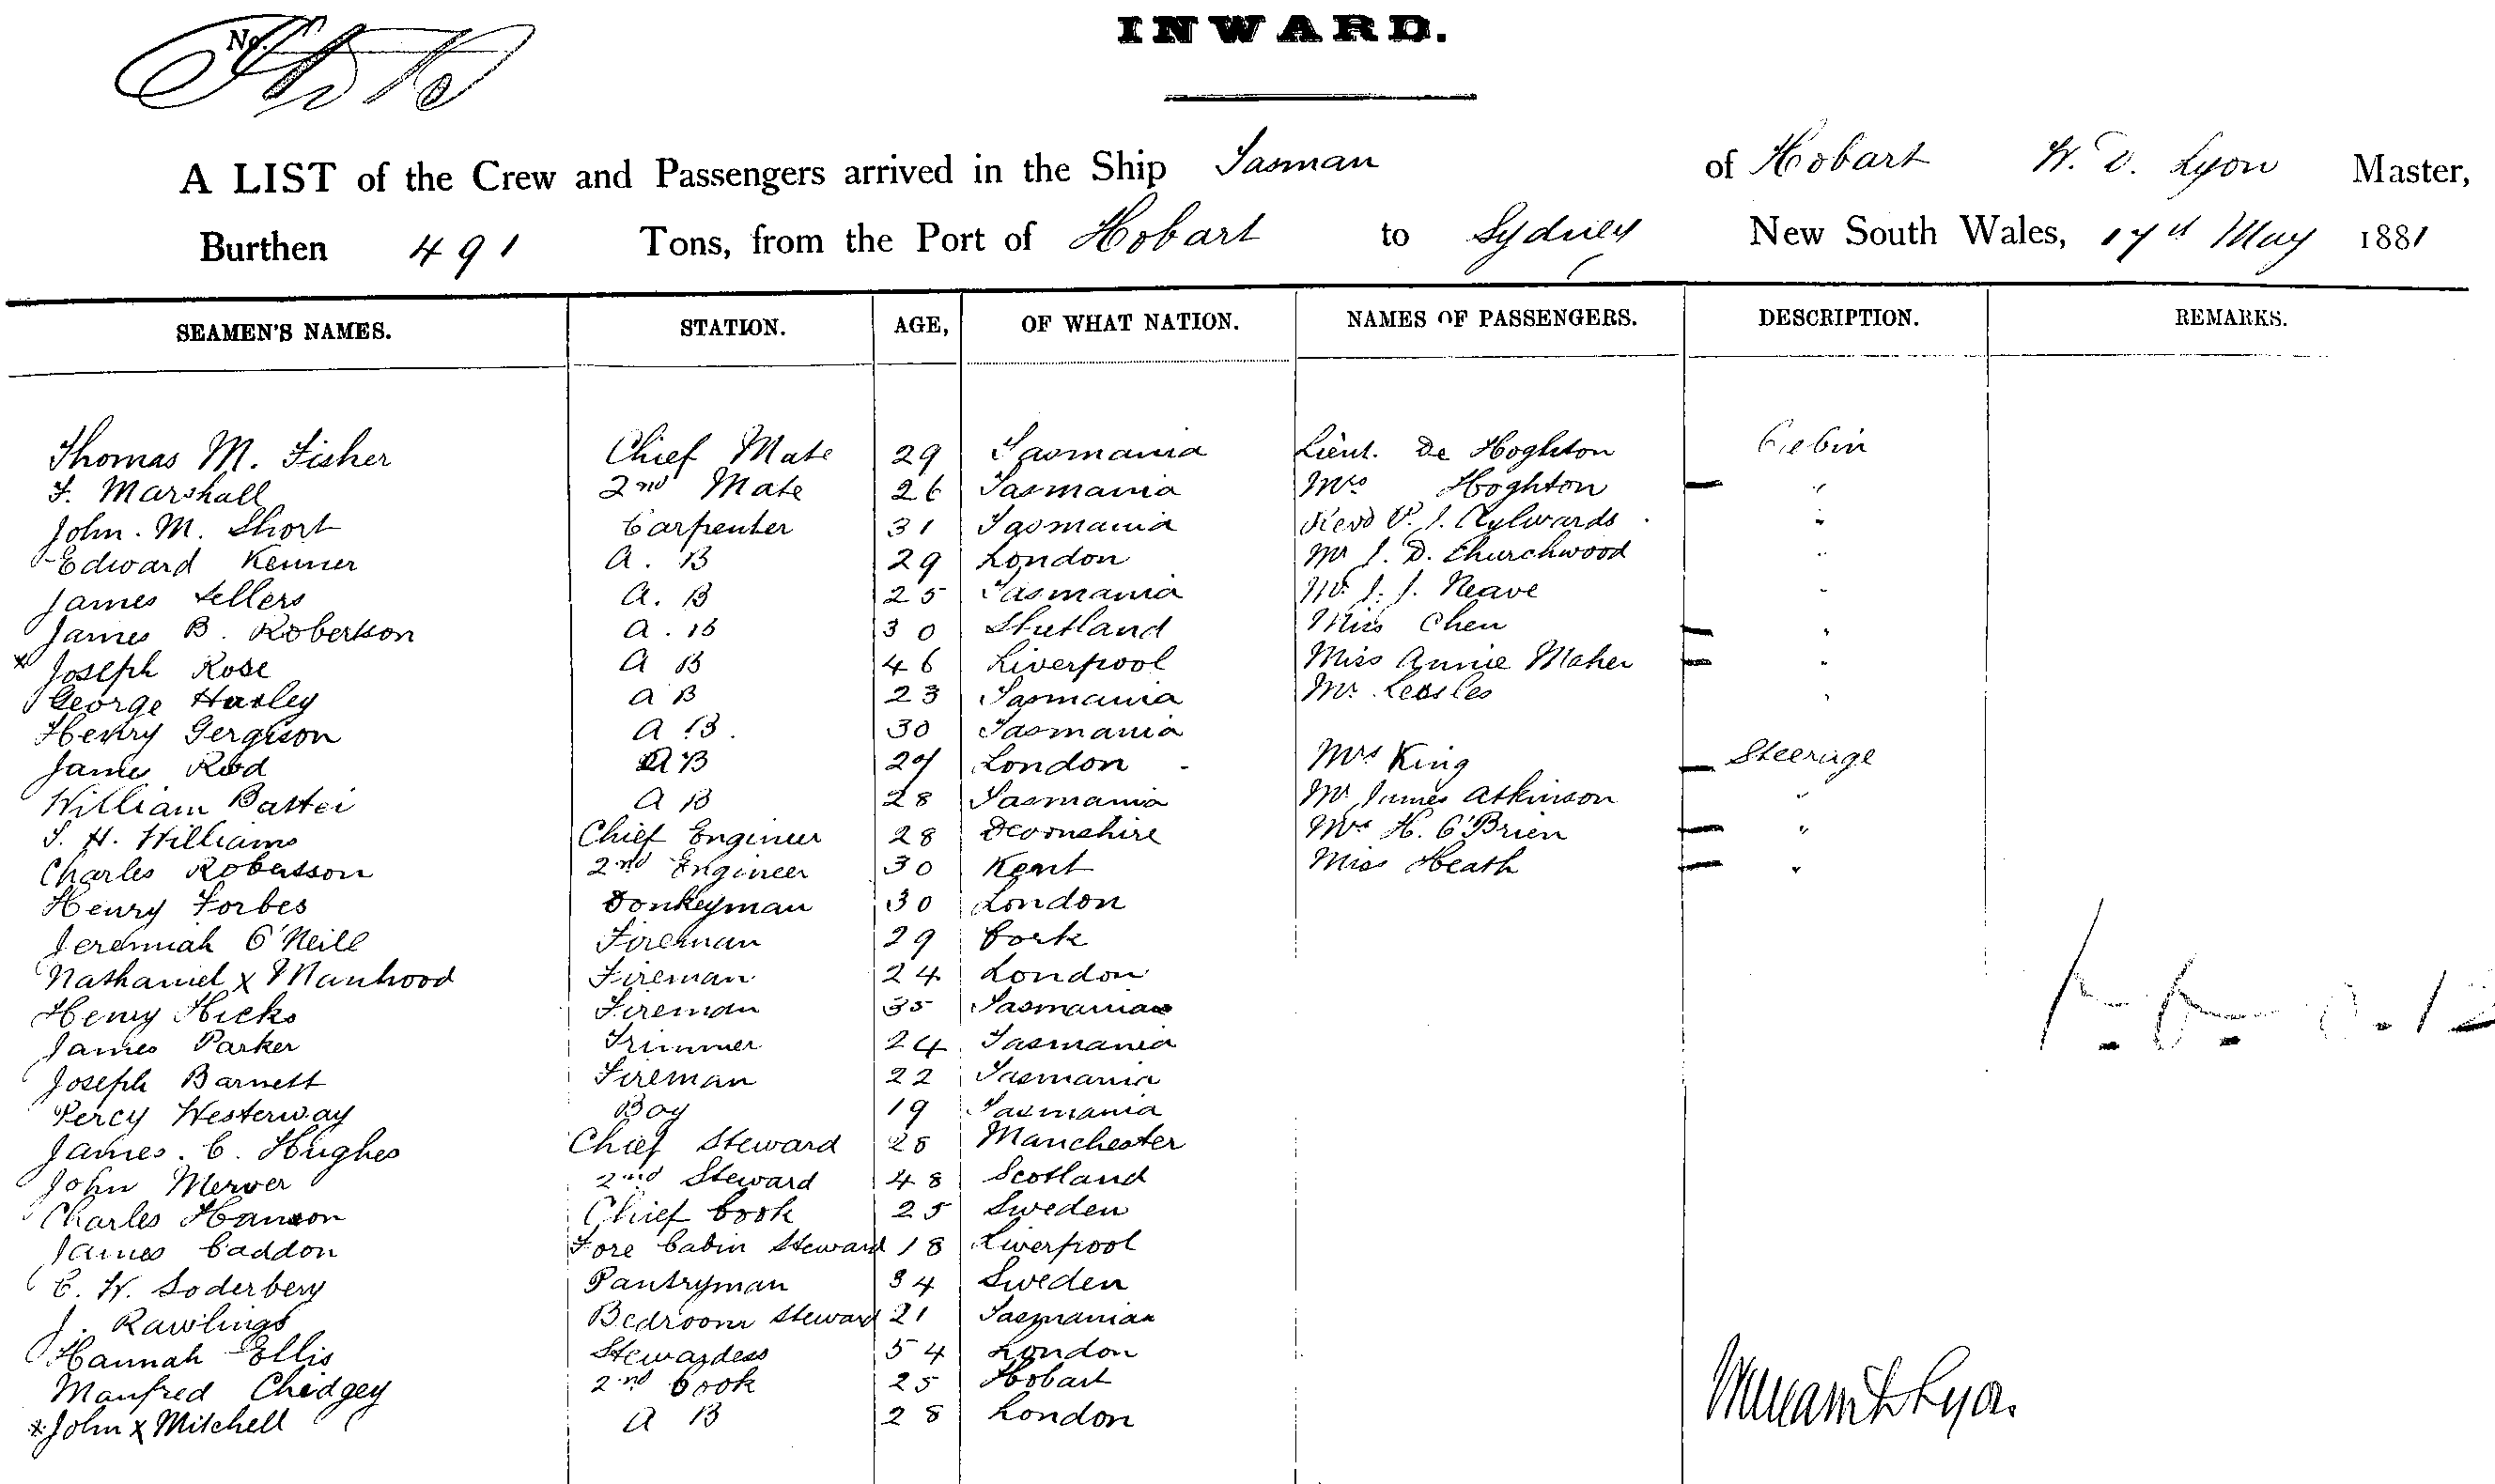 No.
INWARD.
A LIST of the Crew and Passengers arrived in the Ship Tasman of Hobart W. D. Lyon Master,
Burthen 491 Tons, from the Port of Hobart to Sydney New South Wales, 17th May 1881
SEAMEN'S NAMES. STATION. AGE, OF WHAT NATION. NAMES OF PASSENGERS. DESCRIPTION. REMARKS.
Thomas M. Fisher Chief Mate 29 Tasmania Lieut. De Hoghton Cabin
F. Marshall 2nd Mate 26 Tasmania Mrs Hoghton "
John. M. Short Carpenter 31 Tasmania Revd P. J. Aylwards "
Edward Kenner A. B 29 London Mr J. D. Churchwood "
James Sellers A. B 25 Tasmania Mr J. J. Neave "
James B. Robertson A. B 30 Shetland Miss Chen "
* Joseph Rose A B 46 Liverpool Miss Annie Maher "
George Haxley A B 23 Tasmania Mr. "
Henry Ferguson A B. 30 Tasmania
James A B London Mrs King Steerage
William A B 28 Tasmania Mr James Atkinson "
T. H. Williams Chief Engineer 28 Devonshire Mrs H. O'Brien "
Charles Robertson 2nd Engineer 30 Kent Miss Heath "
Henry Forbes Donkeyman 30 London
Jeremiah O'Neill Fireman 29 Cork
Nathaniel x Manhood Fireman 24 London
Henry Hicks Fireman 35 Tasmania
James Parker Trimmer 24 Tasmania
Joseph Barnett Fireman 22 Tasmania
Percy Westerway Boy 19 Tasmania
James. C. Hughes Chief Steward 28 Manchester
John Merver 2nd Steward 48 Scotland
Charles Hanson Chief Cook 25 Sweden
James Caddon Fore Cabin Steward 18 Liverpool
C. W. Soderberg Pantryman 34 Sweden
J. Rawlings Bedroom Steward 21 Tasmanian
Hannah Ellis Stewardess 54 London
Manfred Chidgey 2nd Cook 25 Hobart
* John x Mitchell A B 28 London
William D Lyon